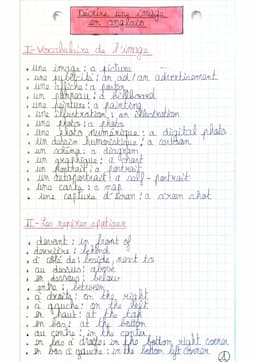 Décrire une image
en anglais
I-Vocabulaire de l'image
• une image : a picture
• une publicité : an ad / an advertisement
• une affiche : a poster
• un panneau : a billboard
• une peinture : a painting
• une illustration : an illustration
• une photo : a photo
• une photo numérique : a digital photo
• un dessin humoristique : a cartoon
• un schéma : a diagram
• un graphique : a chart
• un portrait : a portrait
• un autoportrait : a self-portrait
• une carte : a map
• une capture d'écran : a screen shot
II-Les repères spatiaux
• devant : in front of
• derrière : behind
• à côté de : beside, next to
• au dessus : above
• en dessous : below
• entre : between
• à droite : on the right
• à gauche : on the left
• en haut : at the top
• en bas : at the bottom
• au centre : in the center
• en bas à droite : in the bottom right corner
• en bas à gauche : in the bottom left corner